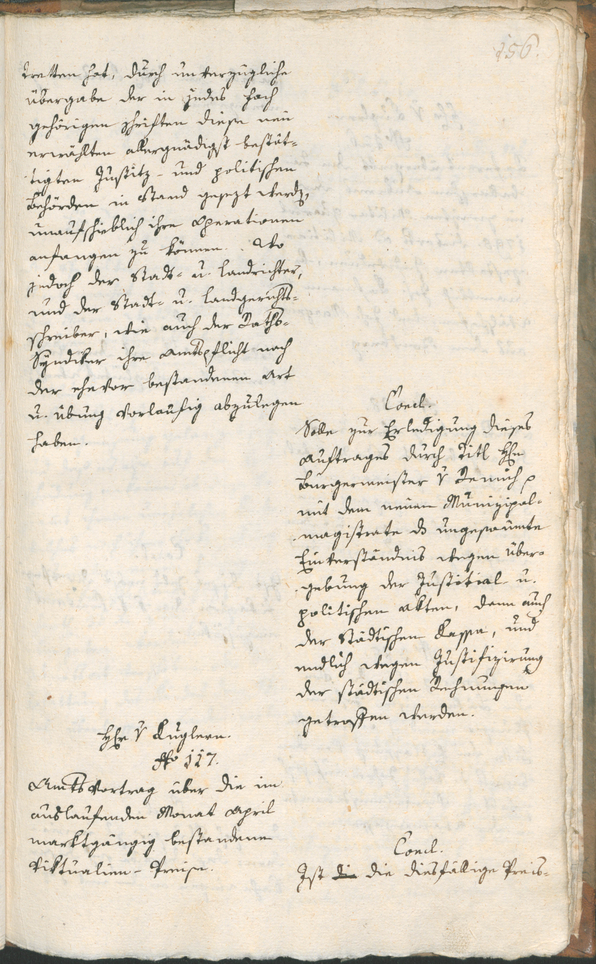 156.
tretten hat, durch unverzügliche
übergabe der in jedes Fach
gehörigen Schriften diesen neu
erwählten allergnädigst bestät-
tigten Justitz- und politischen
Behörden in Stand gesezt werden,
unaufschieblich ihre Operationen
anfangen zu können. Wo
jedoch der Stadt- u. Landrichter,
und der Stadt- u. Landgerichts-
schreiber, wie auch der Raths-
Syndiker ihre Amtspflicht nach
der ehevor bestandenen Art
u. übung vorläufig abzulegen
haben.
Concl.
Solle zur Erledigung dieses
Auftrages durch Titl Hln
Burgermeister v Remich p
mit dem neuen Munizipal-
magistrate das ungesäumte
Einverständnis wegen über-
gebung der Justitial u.
politischen Akten, dann auch
der Städtischen Kassa, und
endlich wegen Justifizirung
der städtischen Rechnungen
getroffen werden.
Hr v Kuglern.
No 117.
Amts Vortrag über die im
auslaufenden Monat April
marktgängig bestandene
Viktualien-Preise.
Concl.
Ist die die diesfällige Preis-